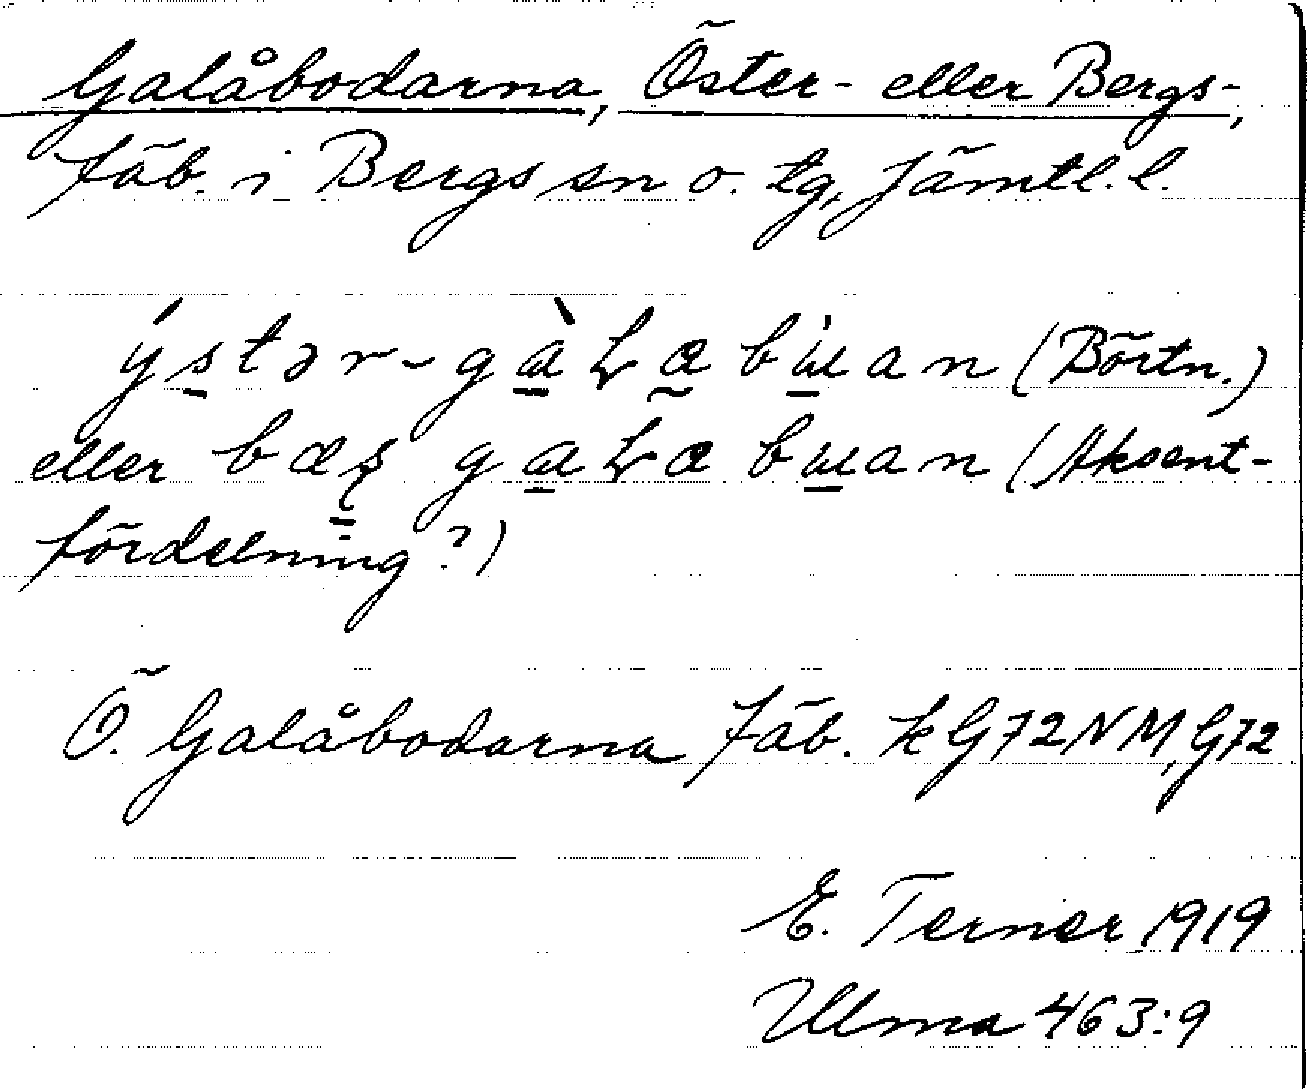 Galåbodarna, Öster- eller Bergs-,
fäb. i Bergs sn o. tg, Jämtl. l.
ýstər-gàꞭæbɯ̀an (Börtn.)
eller bæș gaꞭæbɯan (Aksent-
fördelning?)
Ö. Galåbodarna fäb. kG72NM, G72
E. Terner 1919
Ulma 463:9